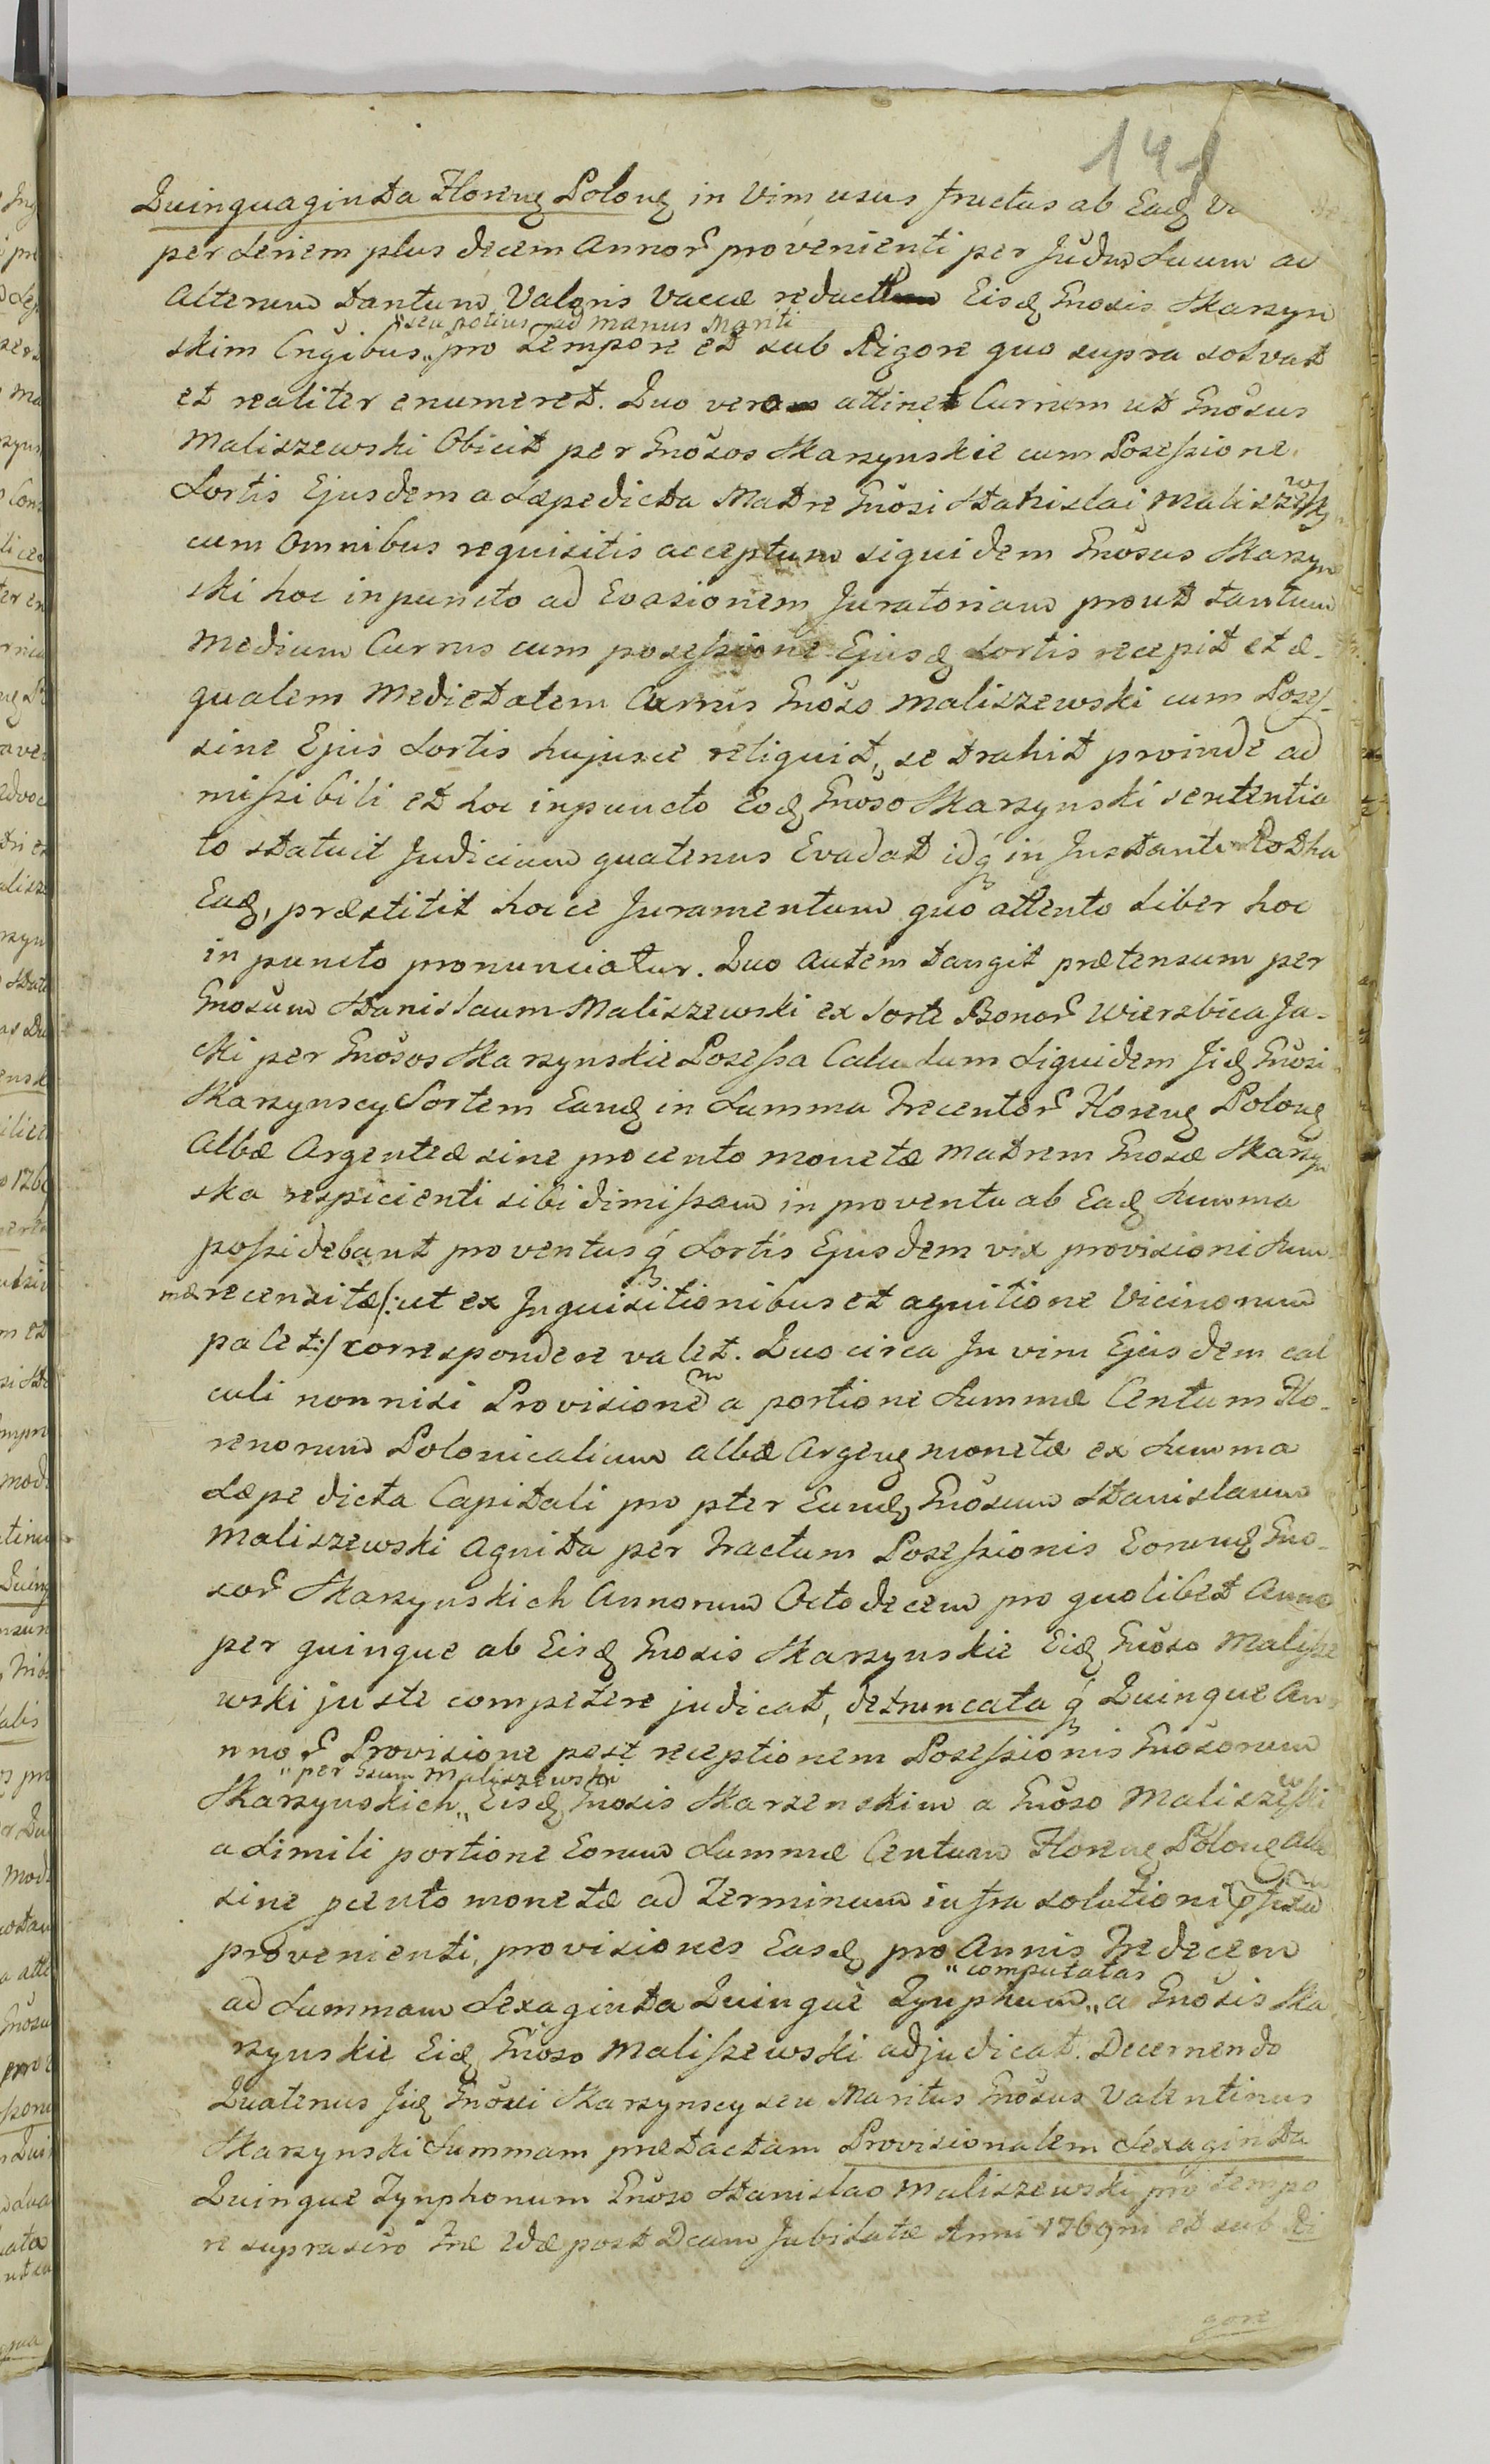 141
Quinquaginta Florenq Polonq in Vim usus fructus ab Eadq
per Seriem plus decem Annor provenienti per Judm Suum ad
Alterum tantum Valoris Vaccæ reductum Eisdq Gnosis Skarzyn
skim Cngibus „seu potius ad manus Mariti„ pro Tempore et sub Rigore quo supra solvat
et realiter enumeret. Quo vero attinet Currum ut Gnosus
Maliszewski Obicit per Gnosos Skarzynskie cum Posessione
Sortis Ejusdem a Sæpedicta Matre Gnosi Stanislai Maliszews
cum Omnibus requisitis acceptum siquidem Gnosus Skarzyn
ski hoc inpuncto ad Evasionem Juratoriam prout tantum
Medium Currus cum posessione Ejusdq Sortis recepit et æ-
qualem Medietatem Currus Gnoso Maliszewski cum Poses-
sine Ejus Sortis hujusce reliquit, se trahit proinde ad
missibili et hoc inpuncto Eodq Gnoso Skarzynski sententia
to statuit Judicium quatenus Evadat idq in Instanti Rotha
Eadq, præstitit hocce Juramentum quo attento liber hoc
in puncto pronunciatur. Quo Autem tangit prætensum per
Gnosum Stanislaum Maliszewski ex Sorte Bonor Wierzbica Ja-
cki per Gnosos Skarzynskie Posessa Calculum Siquidem Jidq Gnosi
Skarzynscy Sortem Eandq in Summa Trecentor Florenq Polonq
Albæ Argenteæ sine procento monetæ Matrem Gnosæ Skarzyn
ska respicienti sibi dimissam in proventu ab Eadq Summa
possidebant proventusq Sortis Ejusdem vix provisioni Sum
mæ recensitæ /: ut ex Inquisitionibus et agnitione Vicinorum
patet :/ correspondere valet. Quo circa In vim Ejusdem cal
culi nonnisi Provisionem a portione Summæ Centum Flo-
renorum Polonicalium albæ Argenq monetæ ex Summa
Sæpe dicta Capitali propter Eundq Gnosum Stanislaum
Maliszewski Agnita per Tractum Posessionis Eorundq Gno-
sor Skarzynskich Annorum Octodecem pro quolibet Anno
per quinque ab Eisdq Gnosis Skarzynskie Eidq Gnoso Malisze
wski juste competere judicat, detruncata q Quinque An
nnor Provisione post receptionem Posessionis Gnosorum
Skarzynskich „per Gsum Maliszewski„ Eisdq Gnosis Skarzenskim a Gnoso Maliszewski
a Simili portione Eorum Summæ Centum Florenq Polonq Albæ
sine pcento monetæ ad Terminum infra solutioni
provenienti, provisiones Easdq pro Annis Tredecem
ad Summam Sexaginta Quinque Tynphum „computatas„ a Gnosis Ska
rzynskie Eidq Gnoso Maliszewski adjudicat. Decernendo
Quatenus Jidq Gnosi Skarzynscy seu Maritus Gnosus Valentinus
Skarzynski Summam prætactam Provisionalem Sexaginta
Quinque Tynphonum Gnoso Stanislao Maliszewski pro tempo
re suprascro Fræ 2dæ post Dcam Jubilatæ Anni 1769ni et sub Ri
gore